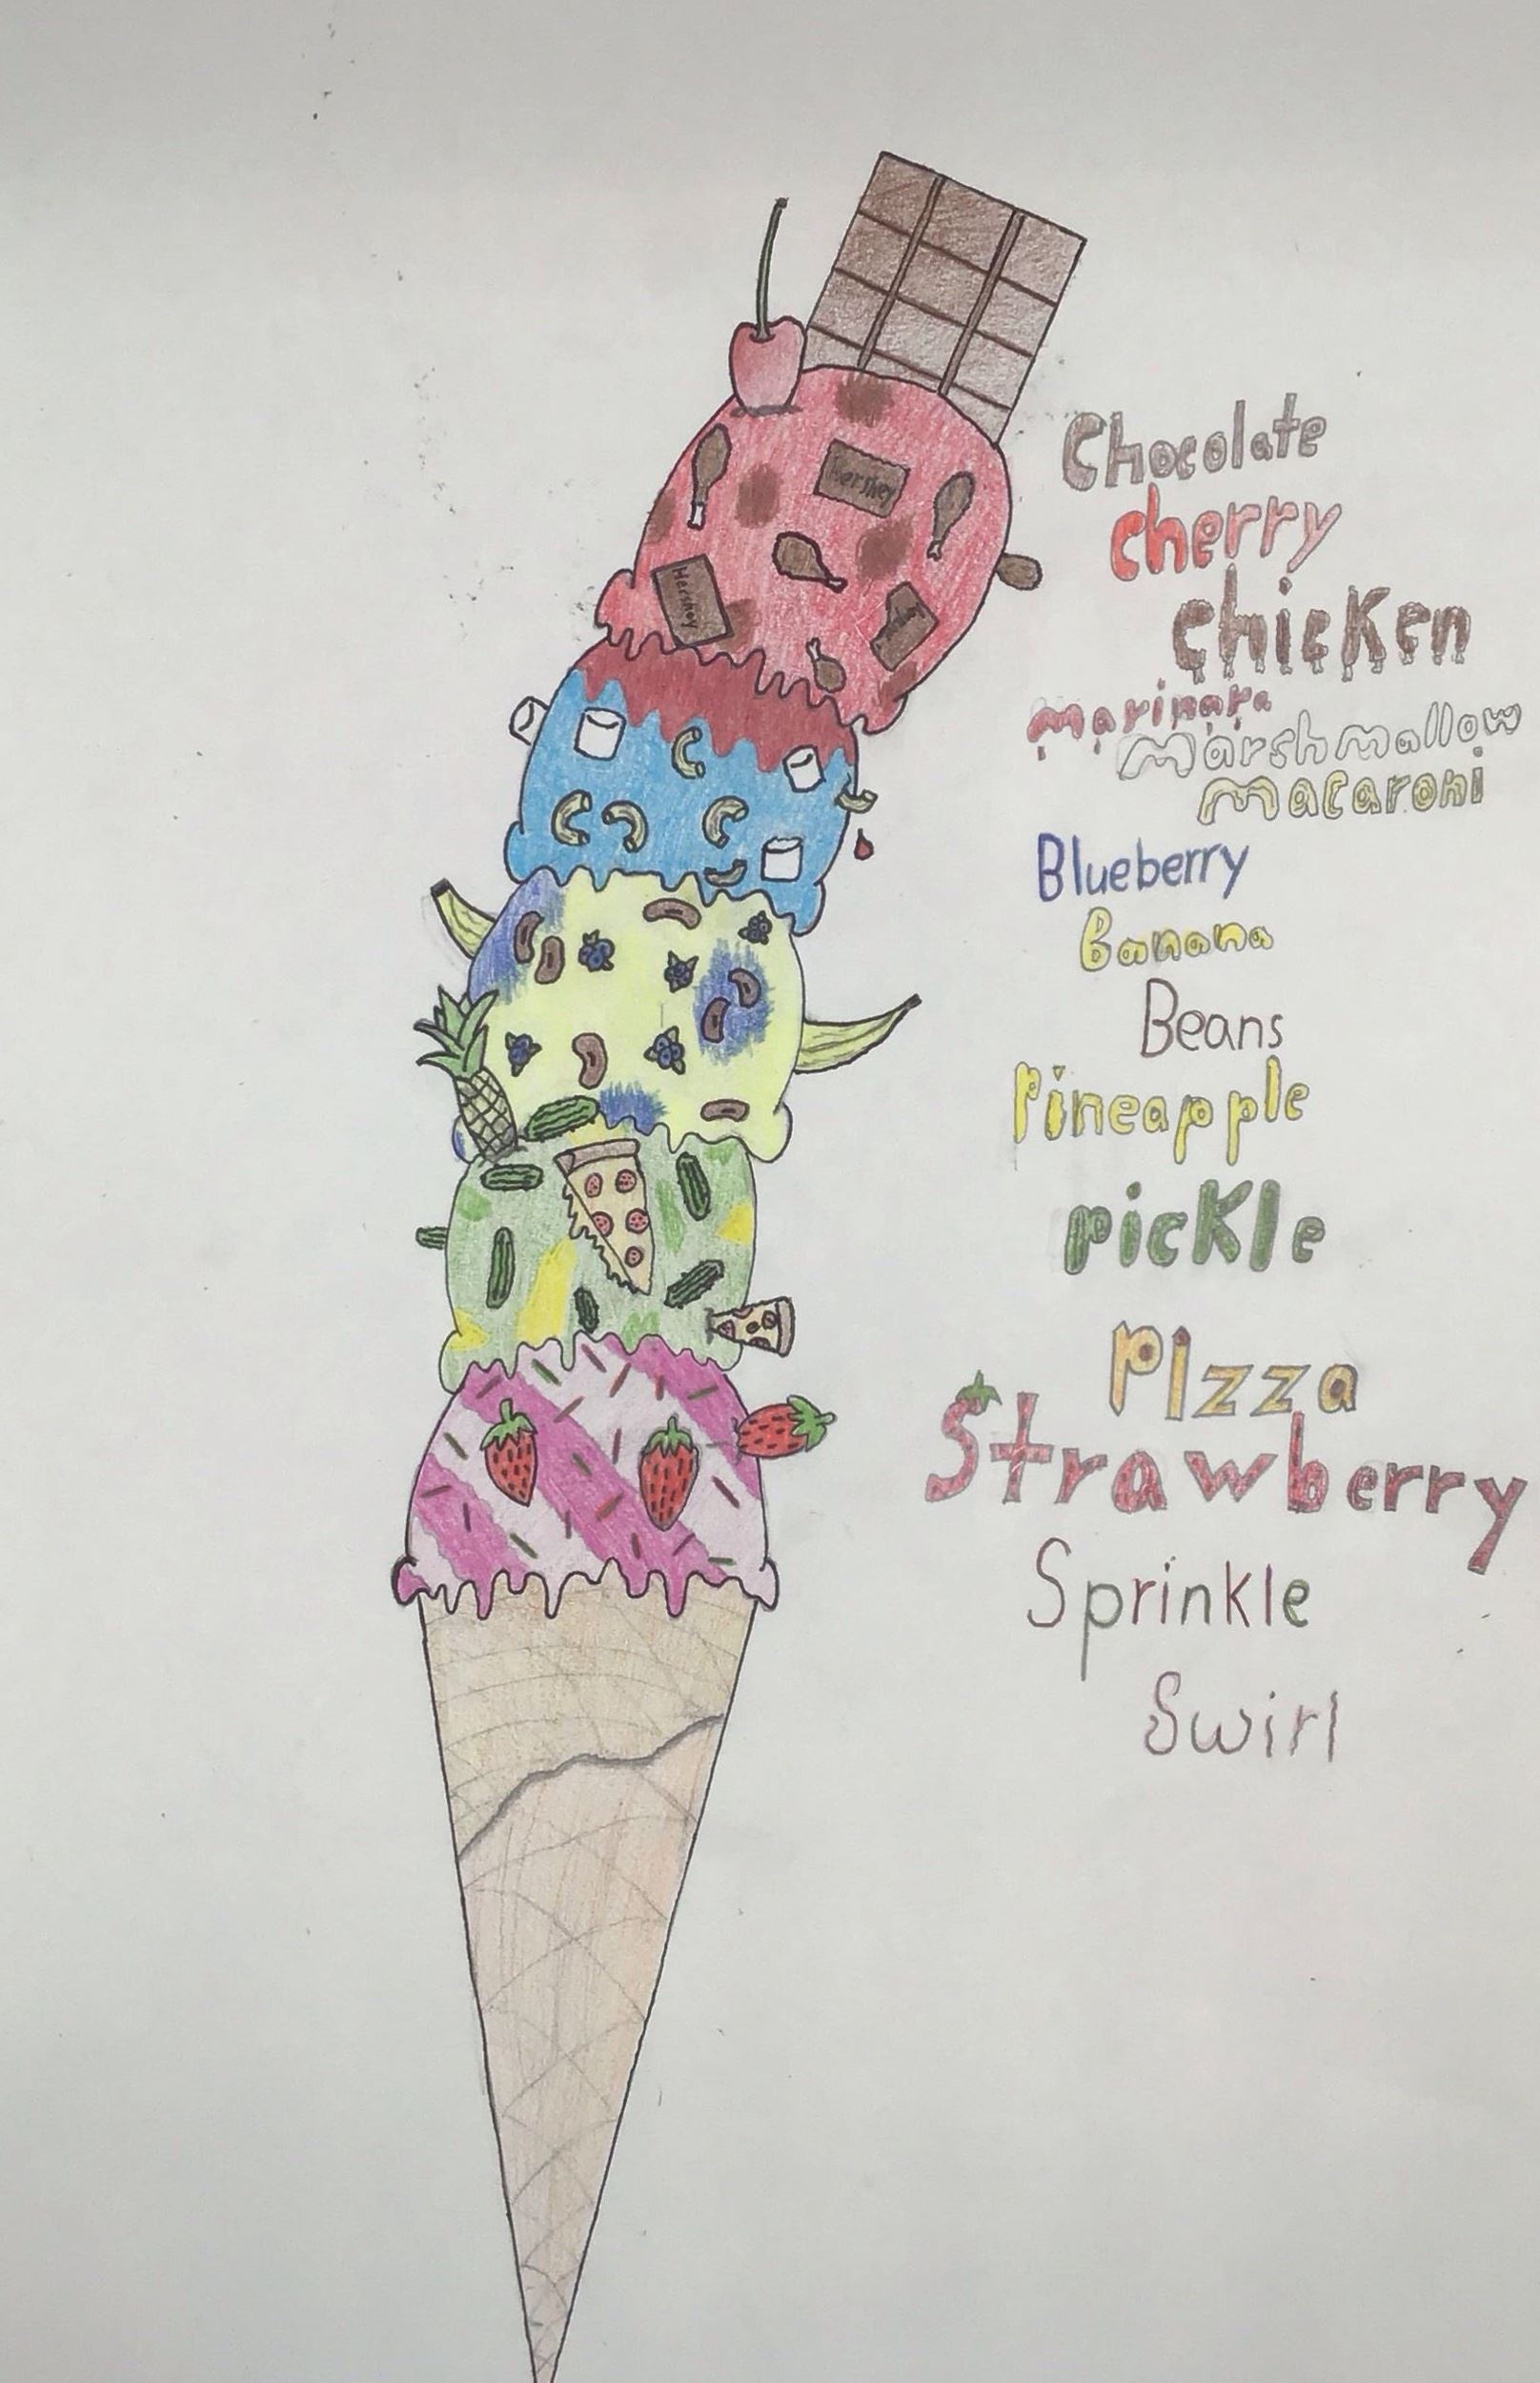 Hershey
Hershey
Chocolate
cherry
chicken
marinara
marshmallow
macaroni
Blueberry
Banana
Beans
Pineapple
pickle
PIzza
Strawberry
Sprinkle
Swirl